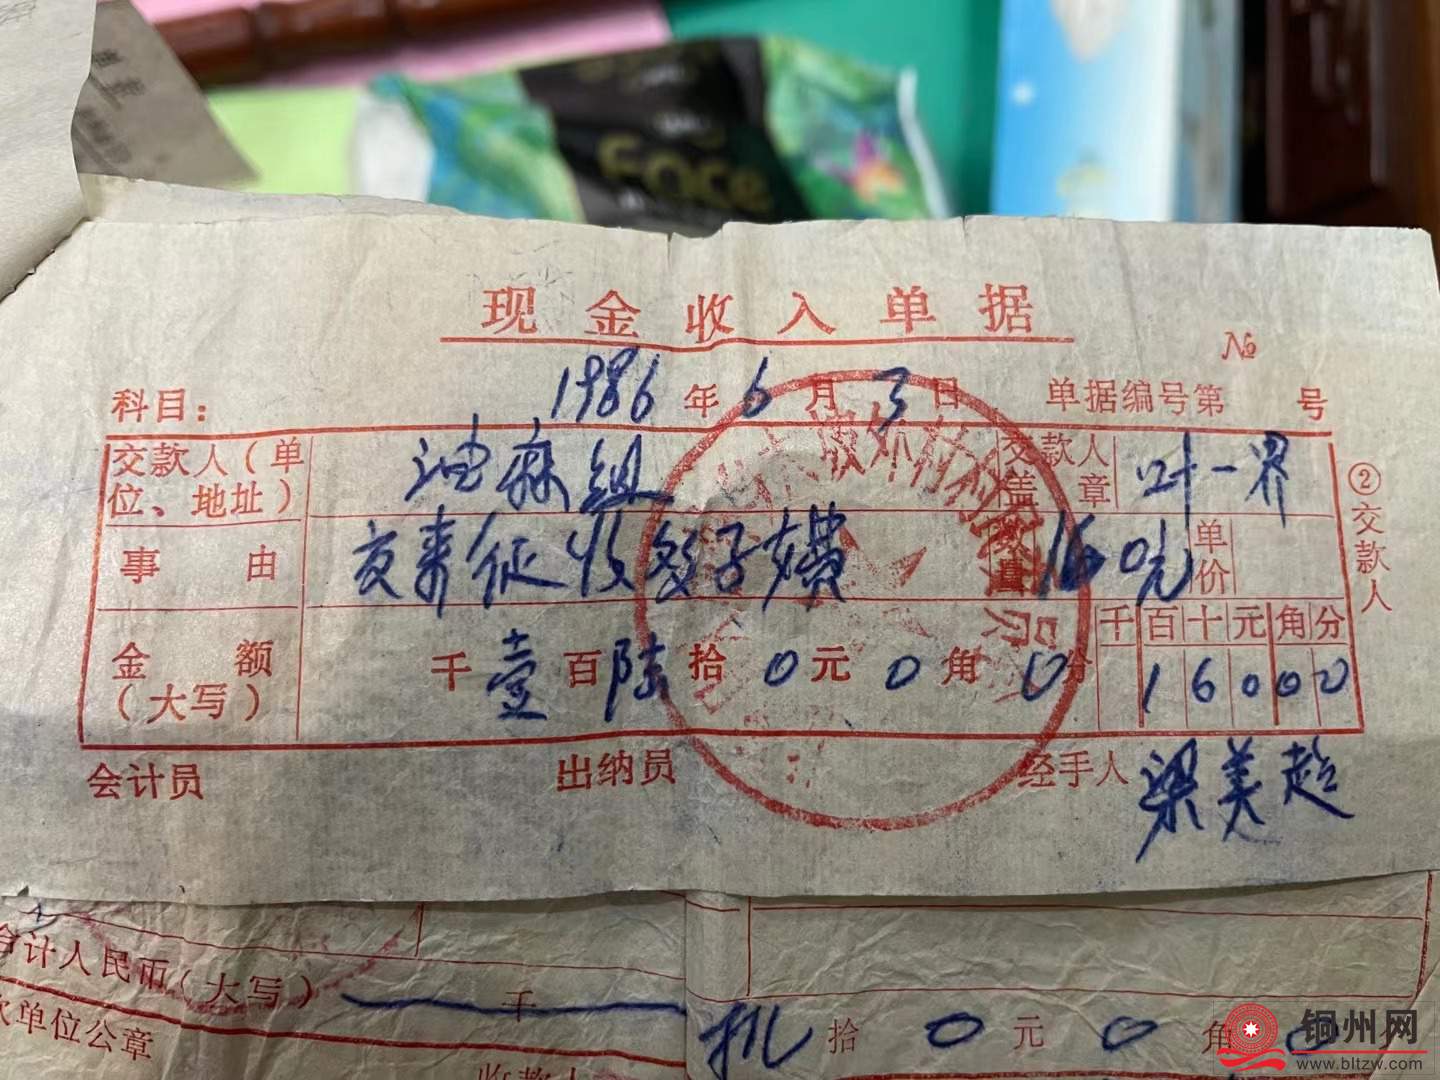 Face
现金收入单据
№
科目： 1986年6月3日 单据编号第 号
交款人（单位、地址） 油麻组 交款人盖章 叶一界
事由 交来征收多子女费 数量 160元 单价
金额（大写） 千壹百陆拾0元0角0分 千百十元角分 16000
②交款人
会计员 出纳员 经手人 梁美超
合计人民币（大写） 千 捌拾0元0角0分
单位公章
收款人
铜州网
www.bltzw.com